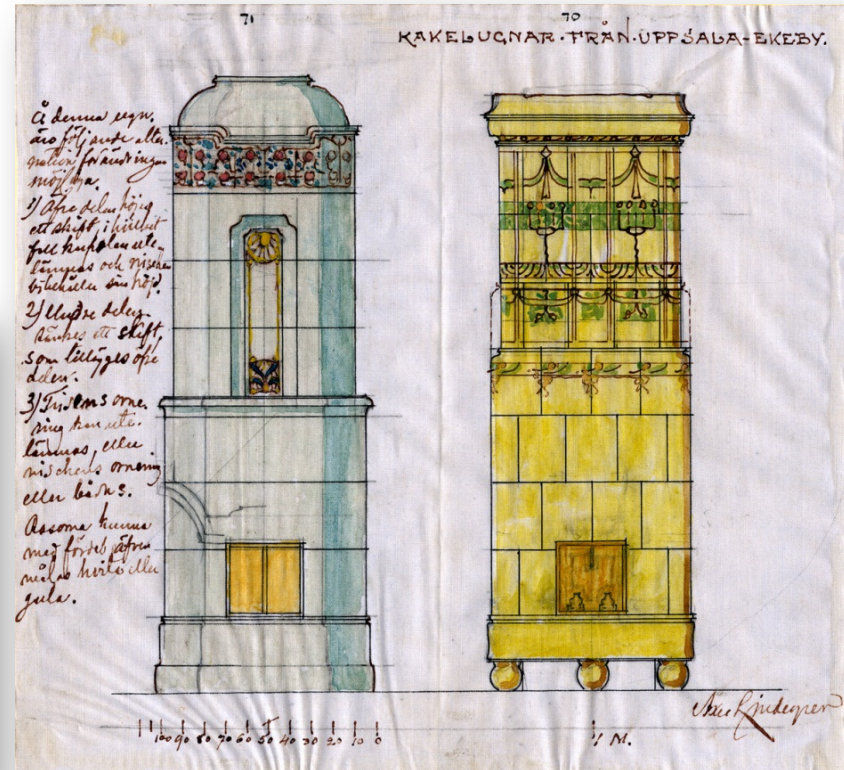 71
70
KAKELUGNAR·FRÅN·UPPSALA-EKEBY.
Å denna ugn.
äro följande alter-
nativa förändringar
möjliga.
1) Öfre delen höjes
ett skift, i hvilket
fall kupolen ute-
lämnas och nischen
bibehåller sin höjd.
2) Undre delen
sänkes ett skift,
som tillägges öfre
delen.
3) Frisens orne-
ring kan ute-
lämnas, eller
nischens ornering
eller bådas.
kunna
med fördel äfven
målas hvita eller
gula.
Axel Lindegren
100 90 80 70 60 50 40 30 20 10 0
1 M.